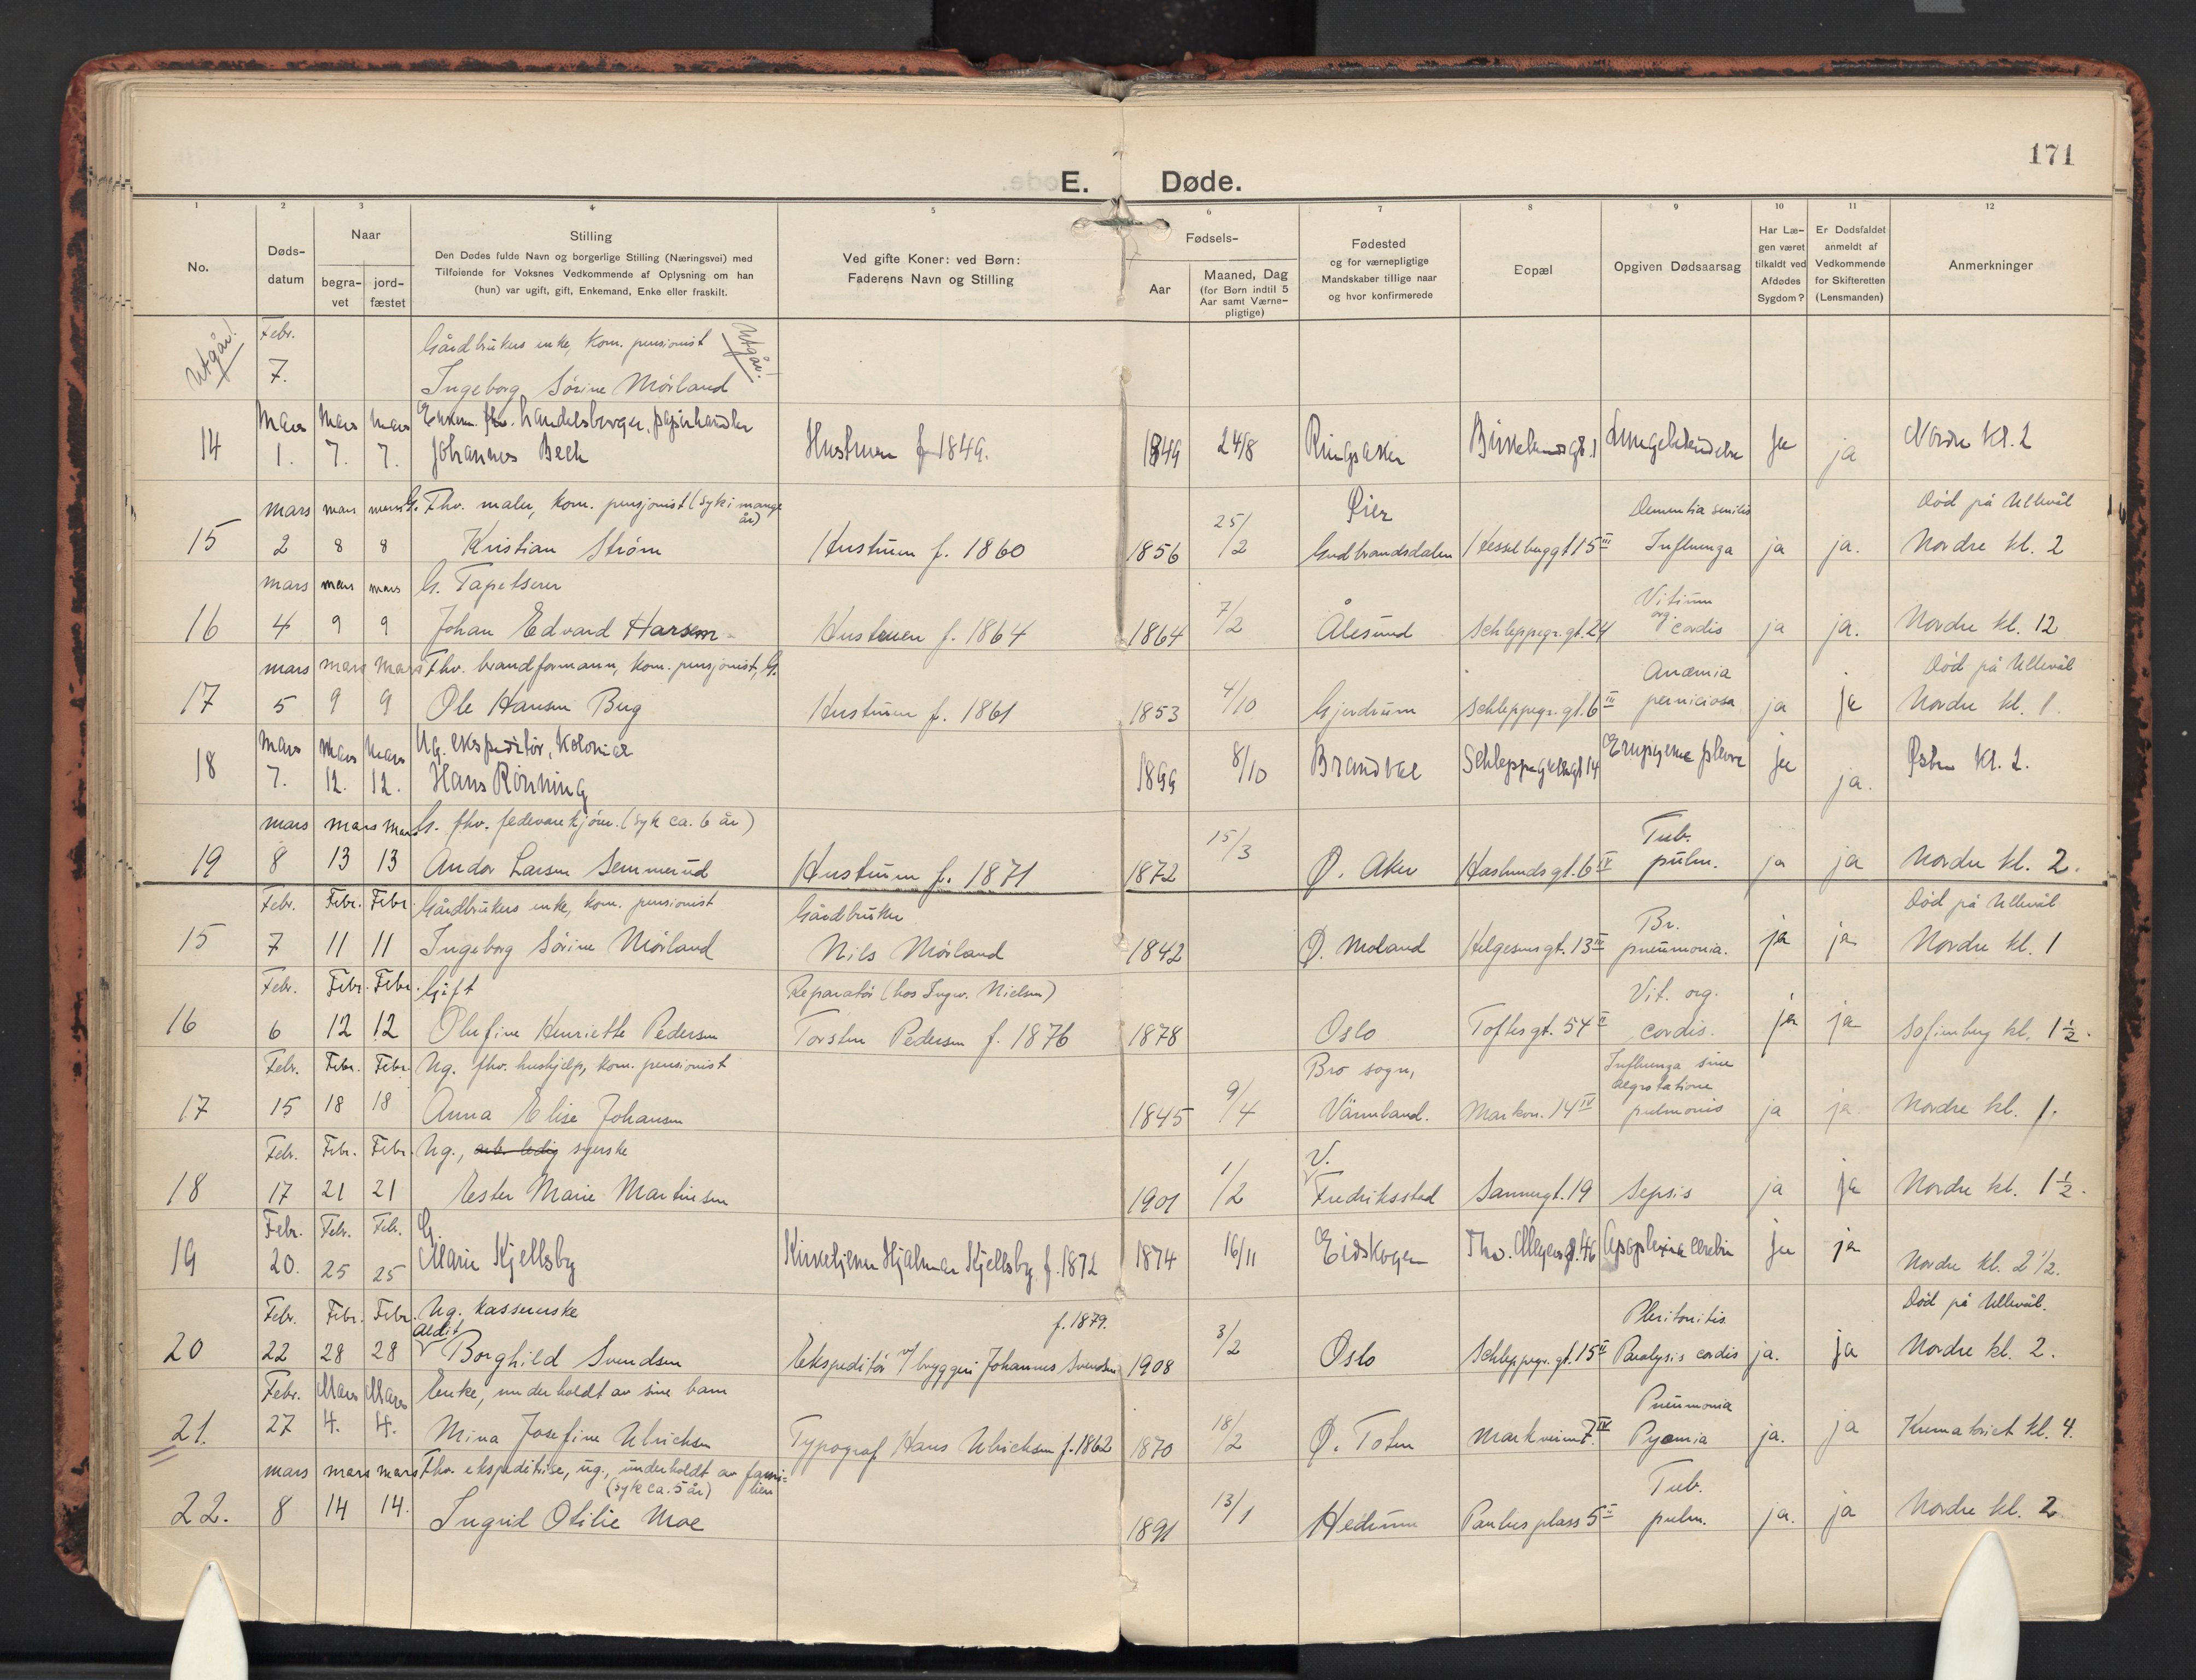 171
E. Døde.
1 2 3 4 5 6 7 8 9 10 11 12
No.
Døds-
datum
Naar
begra-
vet
jord-
fæstet
Stilling
Den Dødes fulde Navn og borgerlige Stilling (Næringsvei) med
Tilføiende for Voksnes Vedkommende af Oplysning om han
(hun) var ugift, gift, Enkemand, Enke eller fraskilt.
Ved gifte Koner: ved Børn:
Faderens Navn og Stilling
Fødsels-
Aar
Maaned, Dag
(for Børn indtil 5
Aar samt Værne-
pligtige)
Fødested
og for værnepligtige
Mandskaber tillige naar
og hvor konfirmerede
Bopæl
Opgiven Dødsaarsag
Har Læ-
gen været
tilkaldt ved
Afdødes
Sygdom?
Er Dødsfaldet
anmeldt af
Vedkommende
for Skifteretten
(Lensmanden)
Anmerkninger
Utgår! Febr. Gårdbrukers enke, kom. pensionist Utgår!
7. Ingeborg Sørine Mörland
Mars Mars Mars Enkem. fhv. handelsborger, papirhandler
14 1. 7. 7. Johannes Bech Hustruen f 1849. 1849 24/8 Ringsaker Birkelunds gt. 1 Lungebetendelse ja ja Nordre Kl. 2
mars mars mars G. Fhv. maler, kom. pensjonist (syk i mange år) Öier Dementia senilis Död på Ullevål
15 2 8 8 Kristian Ström Hustruen f. 1860 1856 25/2 Gudbrandsdalen Hesselbergs gt 15 III Influenza ja ja. Nordre kl. 2
mars mars mars G. Tapetserer Vitium
16 4 9 9 Johan Edvard Hansen Hustruen f. 1864 1864 7/2 Ålesund Schleppegr. gt. 24 org. cordis ja ja. Nordre kl. 12
mars mars mars Fhv. brandformann, kom. pensjonist, G. Anæmia Död på Ullevål
17 5 9 9 Ole Hansen Bug Hustruen f. 1861 1853 4/10 Gjerdrum Schleppegr. gt. 6 III perniciosa ja ja Nordre kl. 1.
Mars Mars Mars Ug. ekspeditör, Kolonial
18 7. 12. 12. Hans Rönning 1899 8/10 Brandval Schleppegrellsgt 14 Empyema pleura ja ja. Östre Kl. 2.
mars mars mars G. fhv. fedevarekjöm. (syk ca. 6 år) Tub.
19 8 13 13 Andor Larsen Semmerud Hustruen f. 1871 1872 15/3 Ø. Aker Haslunds gt. 6 IV pulm. ja ja Nordre kl. 2.
Febr. Febr. Febr. Gårdbrukers enke, kom. pensionist Gårdbruker Br. Död på Ullevål
15 7 11 11 Ingeborg Sörine Mörland Nils Mörland 1842 Ø. Moland Helgesens gt. 13 III pneumonia. ja ja Nordre kl. 1
Febr. Febr. Febr. Gift Reparatör (hos Ingw. Nielsen) Vit. org.
16 6 12 12 Olufine Henriette Pedersen Torsten Pedersen f. 1876 1878 Oslo Toftes gt. 54 II cordis. ja ja Sofienberg kl. 1 1/2.
Febr. Febr. Febr. Ug. fhv. hushjelp, kom. pensionist Bro sogn, Influenza sine aegrotatione
17 15 18 18 Anna Elise Johansen 1845 9/4 Värmland. Markvn. 14 IV pulmonis ja ja Nordre kl. 1.
Febr. Febr. Febr. Ug., arb. ledig syerske V.
18 17 21 21 Ester Marie Martinsen 1901 1/2 Fredriksstad Sannergt. 19 Sepsis ja ja Nordre kl. 1 1/2.
Febr. Febr. Febr. G.
19 20. 25 25 Marie Kjellsby Kirketjener Hjalmar Kjellsby f. 1872 1874 16/11 Eidskogen Thv. Meyers gt. 46 Apoplexia cerebri ja ja Nordre kl. 2 1/2.
Febr. Febr. Febr. Ug. kassererske f. 1879. Död på Ullevål.
20 22 28 28 Aedit Borghild Svendsen Ekspeditör v/ bryggeri Johannes Svendsen 1908 3/2 Oslo Schleppegr. gt. 15 II Paralysis cordis ja. ja Nordre kl. 2.
Febr. Mars Mars Enke, underholdt av sine barn Pneumonia
21. 27 4. 4. Mina Josefine Ulrichsen Typograf Hans Ulrichsen f. 1862 1870 18/2 Ø. Toten Markveien 7 IV Pyæmia ja. ja Krematoriet kl. 4.
mars mars mars Fhv. ekspeditrise, ug., underholdt av fami-
lien (syk ca. 5 år) Tub.
22. 8 14 14. Ingrid Otilie Moe 1891 13/1 Hedrum Paulus plass 5 II pulm. ja. ja Nordre kl. 2